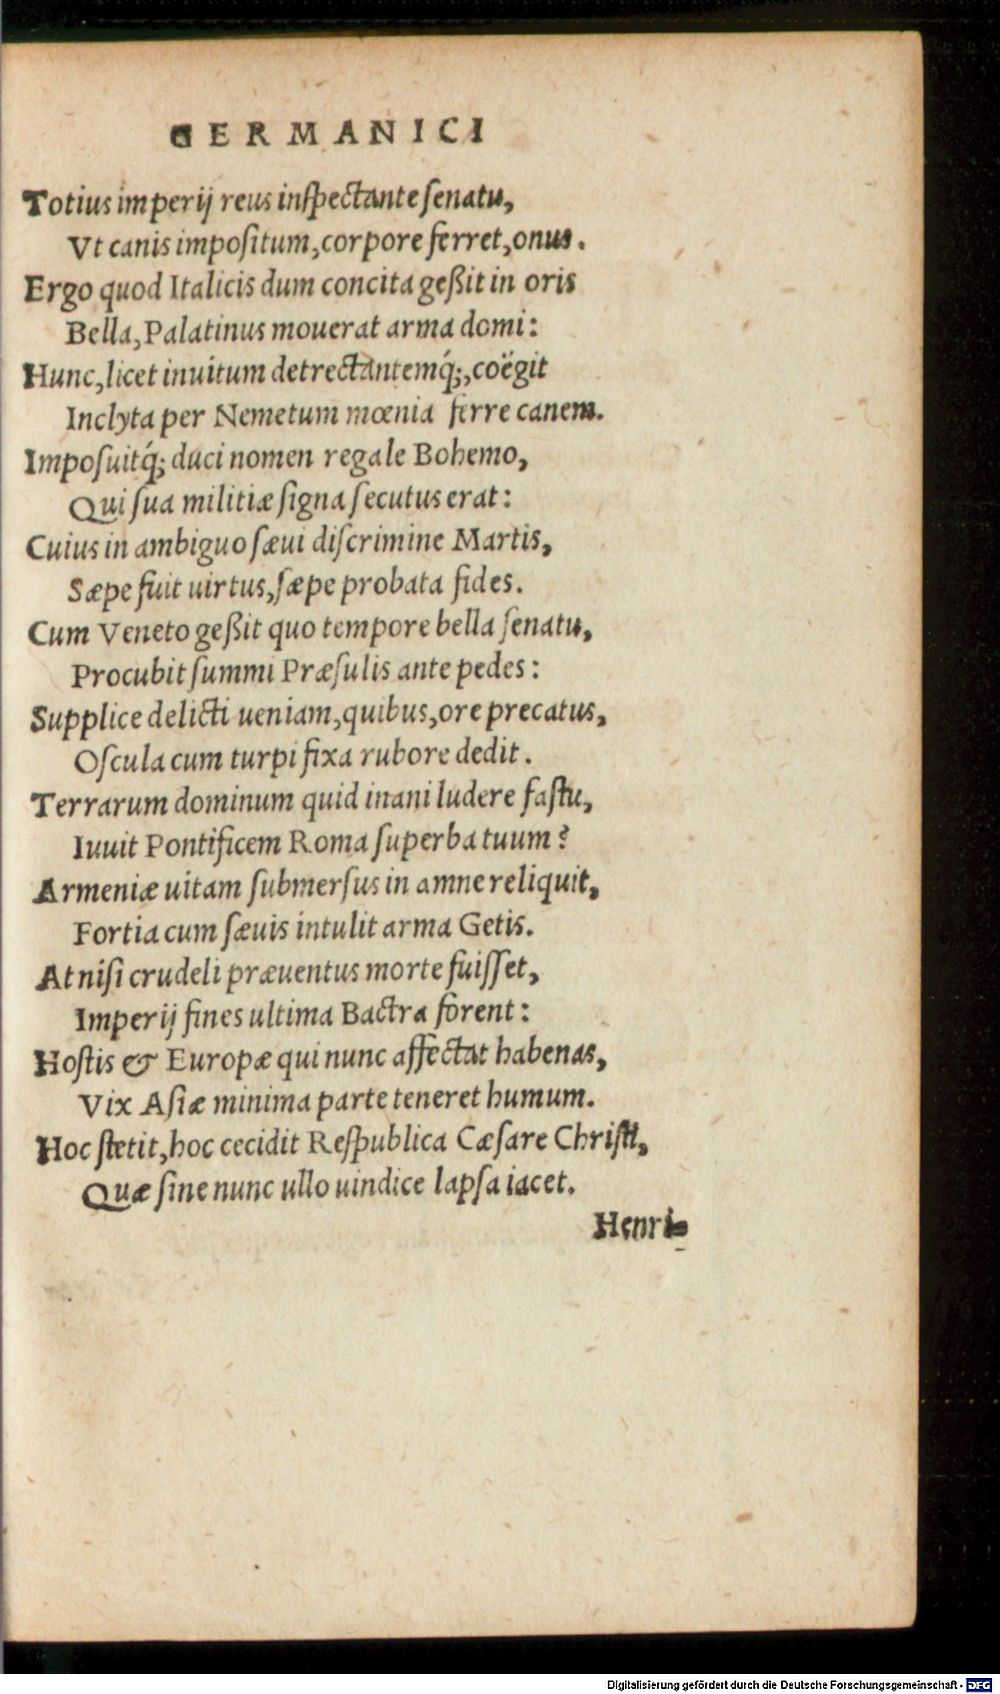 GERMANICI
Totius imperij reus inſpectante ſenatu,
Vt canis impoſitum, corpore ferret, onus.
Ergo quod Italicis dum concita geßit in oris
Bella, Palatinus mouerat arma domi:
Hunc, licet inuitum detrectantemq́;, coëgit
Inclyta per Nemetum mœnia ferre canem.
Impoſuitq́; duci nomen regale Bohemo,
Qui ſua militiæ ſigna ſecutus erat:
Cuius in ambiguo ſæui diſcrimine Martis,
Sæpe fuit uirtus, ſæpe probata fides.
Cum Veneto geßit quo tempore bella ſenatu,
Procubit ſummi Præſulis ante pedes:
Supplice delicti ueniam, quibus, ore precatus,
Oſcula cum turpi fixa rubore dedit.
Terrarum dominum quid inani ludere faſtu,
Iuuit Pontificem Roma ſuperba tuum?
Armeniæ uitam ſubmerſus in amne reliquit,
Fortia cum ſæuis intulit arma Getis.
At niſi crudeli præuentus morte fuiſſet,
Imperij fines ultima Bactra forent:
Hoſtis & Europæ qui nunc affectat habenas,
Vix Aſiæ minima parte teneret humum.
Hoc ſtetit, hoc cecidit Reſpublica Cæſare Chriſti,
Quæ ſine nunc ullo uindice lapſa iacet.
Henri-
Digitalisierung gefördert durch die Deutsche Forschungsgemeinschaft - DFG